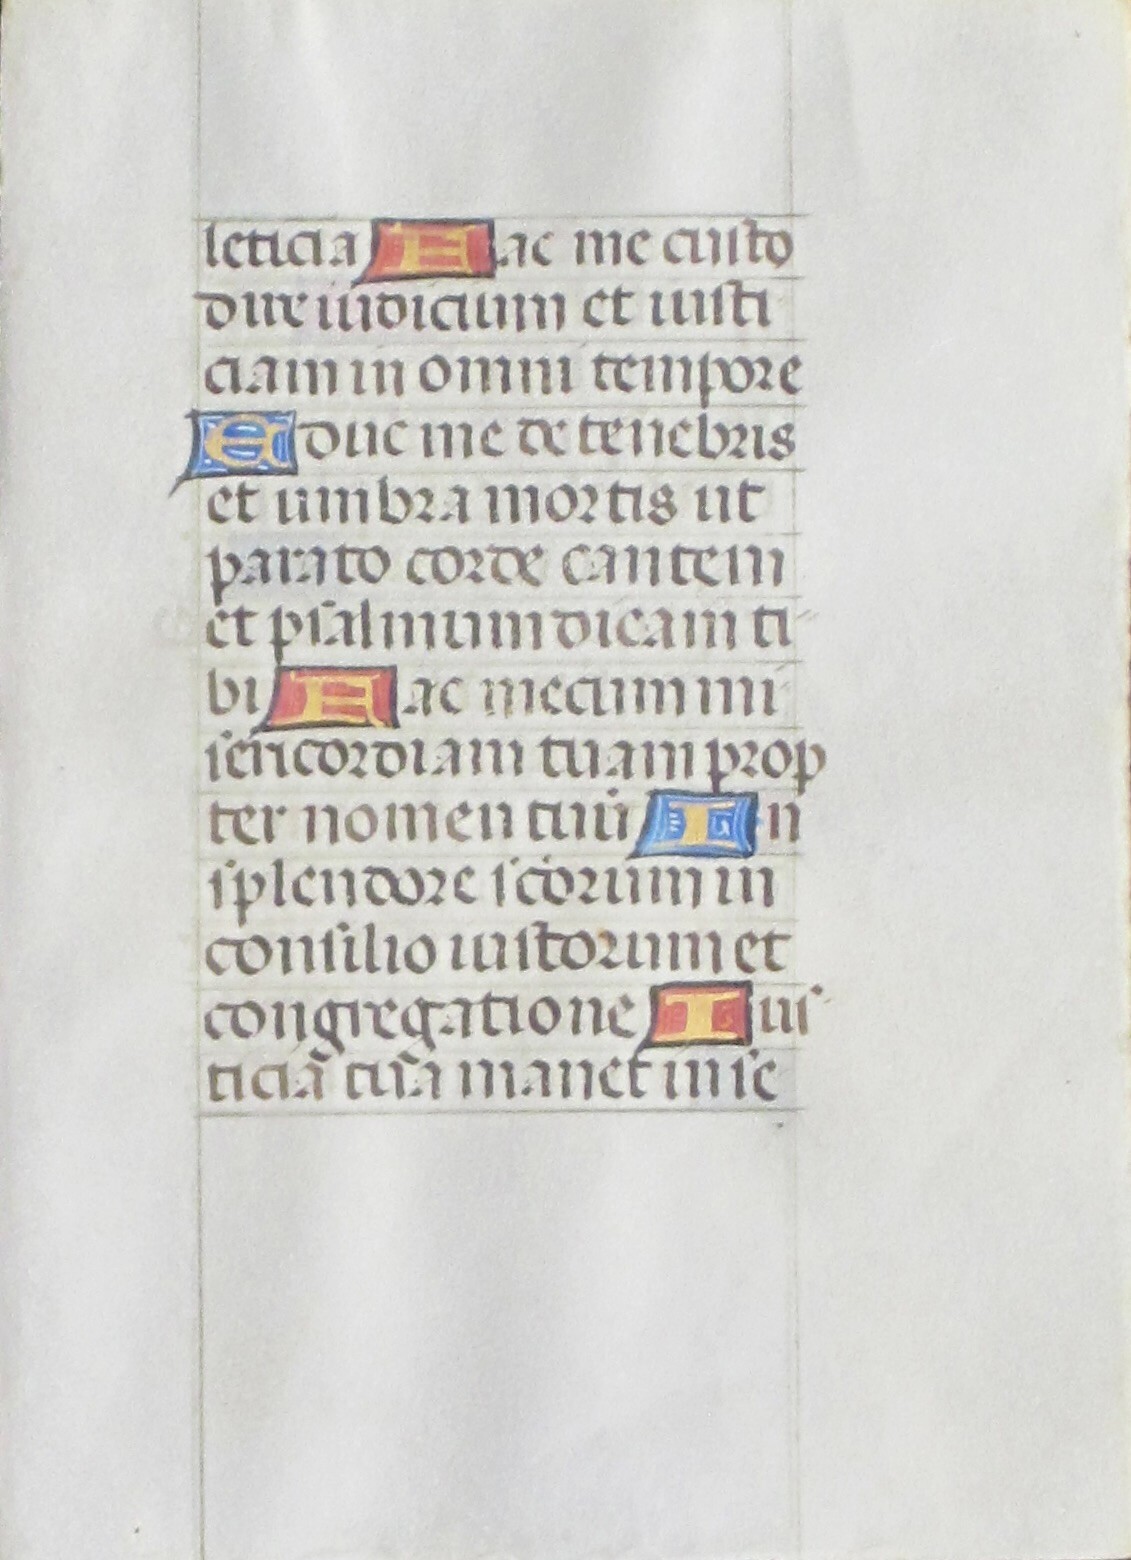 leticia Fac me custo
dire iudicium et iusti
ciam in omni tempore
Educ me de tenebris
et umbra mortis ut
parato corde cantem
et psalmum dicam ti
bi Fac mecum mi
sericordiam tuam prop
ter nomen tuū In
splendore scōrum in
consilio iustorum et
congregatione Ius
ticiā tua manet in se